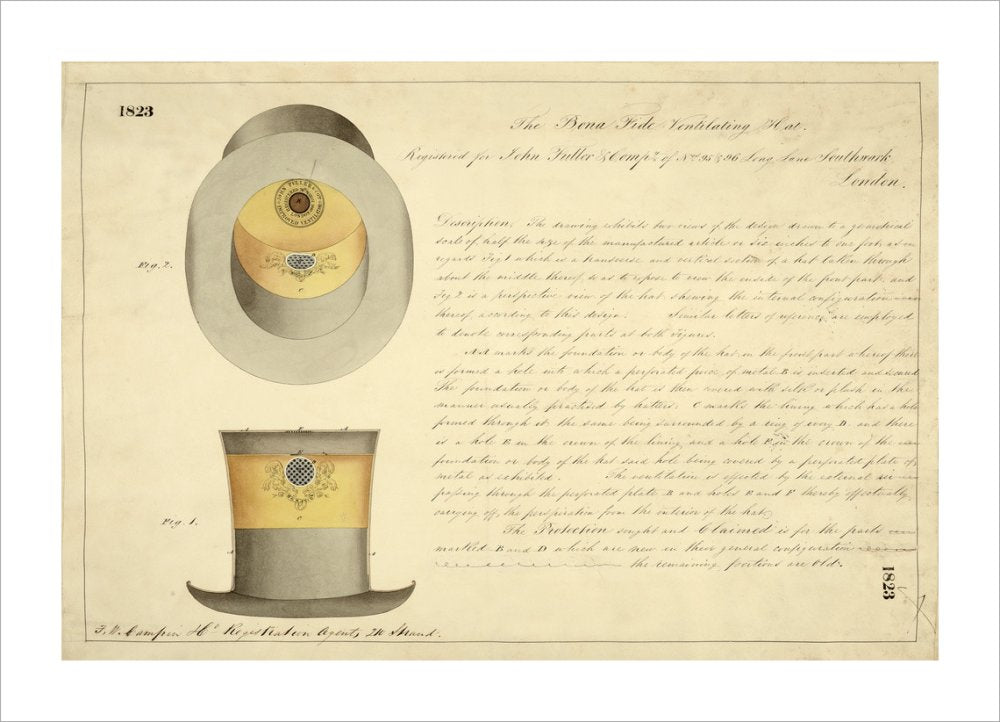 1823
The Bona Fide Ventilating Hat.
Registered for John Fuller & Compy. of Nos. 95 & 96 Long Lane Southwark
London.
Description. The drawing exhibits two views of the design drawn to a geometrical
scale of half the size of the manufactured article or six inches to one foot, as
regards Fig 1 which is a transverse and vertical section of a hat taken through
about the middle thereof, so as to expose to view the inside of the front part. and
Fig 2 is a perspective view of the hat shewing the internal configuration
thereof, according to this design. Similar letters of reference are employed
to denote corresponding parts at both Figures.
AA marks the foundation or body of the hat, in the front part whereof there
is formed a hole into which a perforated piece of metal B is inserted and secured
The foundation or body of the hat is then covered with silk or plush in the
manner usually practised by hatters: C marks the lining which has a hole
formed through it, the same being surrounded by a ring of ivory D. and there
is a hole E in the crown of the lining, and a hole F in the crown of the
foundation or body of the hat said hole being covered by a perforated plate of
metal as exhibited. The ventilation is effected by the external air
passing through the perforated plate B and holes E and F thereby effectually
carrying off, the perspiration from the interior of the hat.
The Protection sought and Claimed is for the parts
marked B and D which are new in their general configuration
the remaining portions are Old.
Fig. 2.
JOHN FULLER & CO
IMPROVED VENTILATOR
C
Fig. 1.
A
F
A
E
B
C
A
A
A
A
1823
F. W. Campin Registration Agent, 210 Strand.